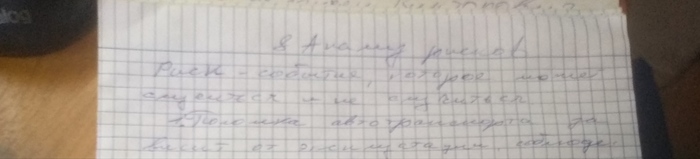 8 Анализ рисков
Риск - событие, которое може
случиться и не случиться
1. Поломка автотранспорта за
висит от эксплуатации, соблюде